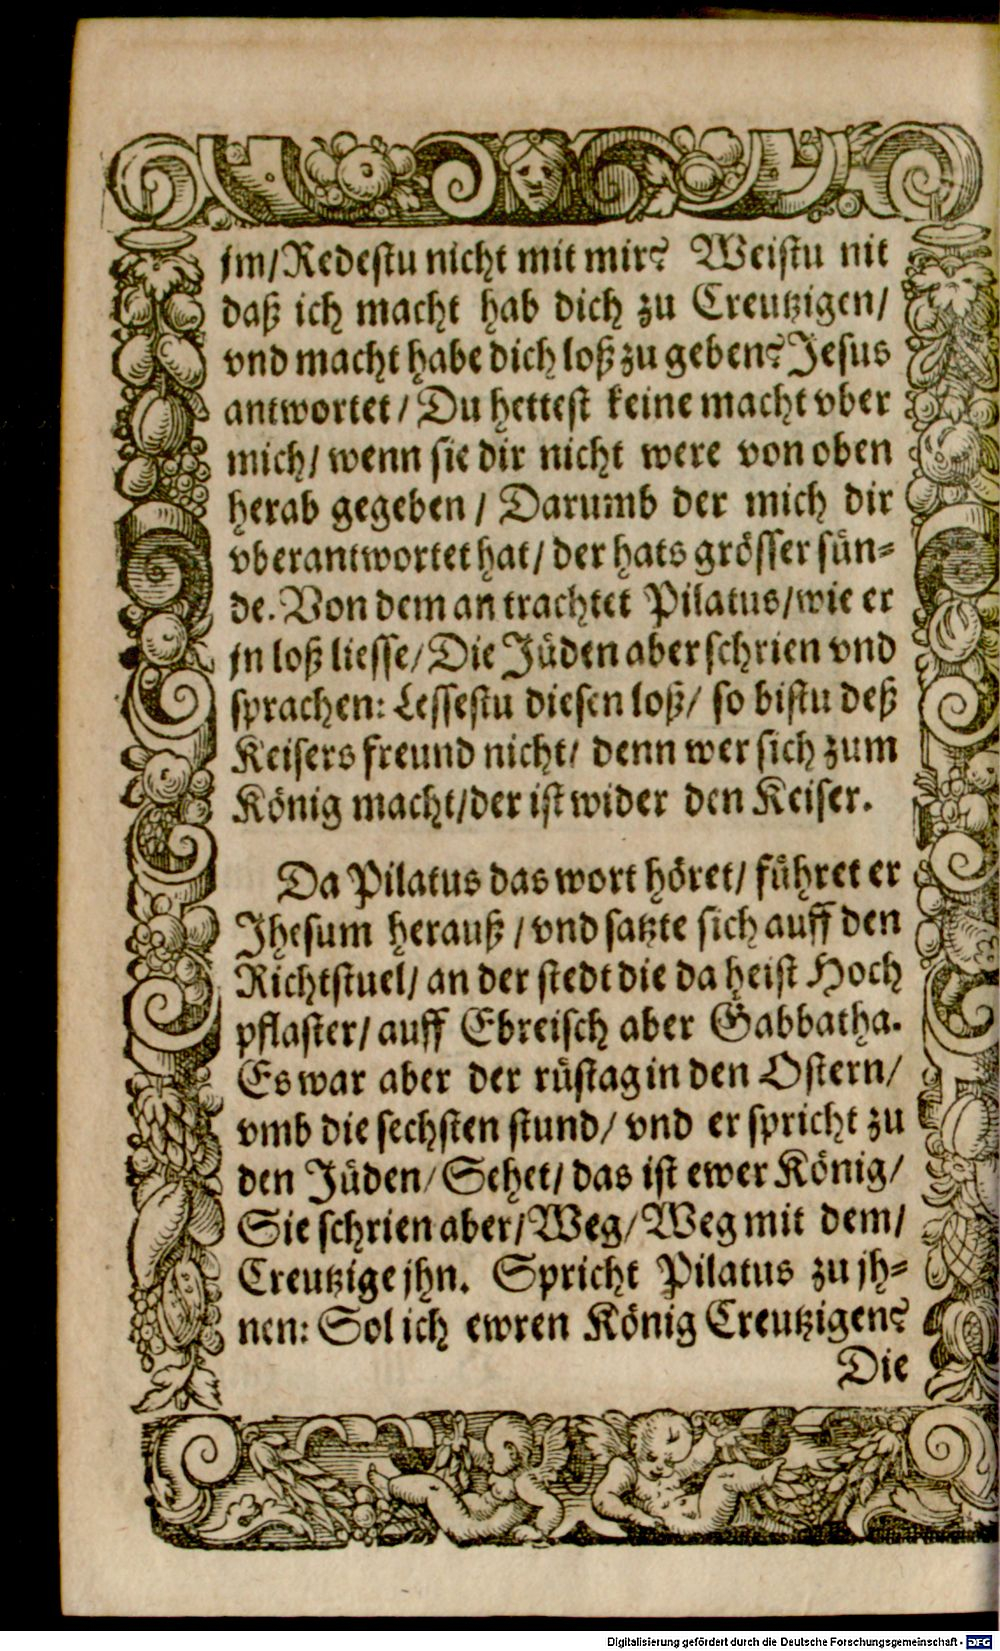 jm/Redestu nicht mit mir? Weistu nit
daß ich macht hab dich zu Creutzigen/
vnd macht habe dich loß zu geben? Jesus
antwortet/ Du hettest keine macht vber
mich/ wenn sie dir nicht were von oben
herab gegeben/ Darumb der mich dir
vberantwortet hat/ der hats grösser sün-
de. Von dem an trachtet Pilatus/wie er
jn loß liesse/ Die Jüden aber schrien vnd
sprachen: Lessestu diesen loß/ so bistu deß
Keisers freund nicht/ denn wer sich zum
König macht/der ist wider den Keiser.
Da Pilatus das wort höret/ führet er
Jhesum herauß/ vnd satzte sich auff den
Richtstuel/ an der stedt die da heist Hoch
pflaster/ auff Ebreisch aber Gabbatha.
Es war aber der rüstag in den Ostern/
vmb die sechsten stund/ vnd er spricht zu
den Jüden/ Sehet/ das ist ewer König/
Sie schrien aber/Weg/ Weg mit dem/
Creutzige jhn. Spricht Pilatus zu jh-
nen: Sol ich ewren König Creutzigen?
Die
Digitalisierung gefördert durch die Deutsche Forschungsgemeinschaft - DFG